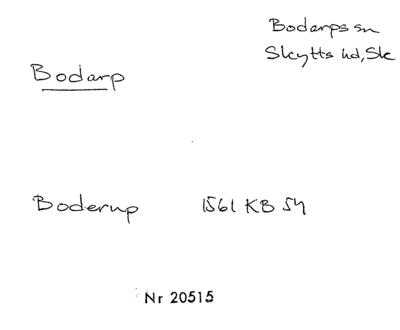 Bodarps sn
Skytts hd, Sk
Bodarp
Boderup 1561 KB 54
Nr 20515